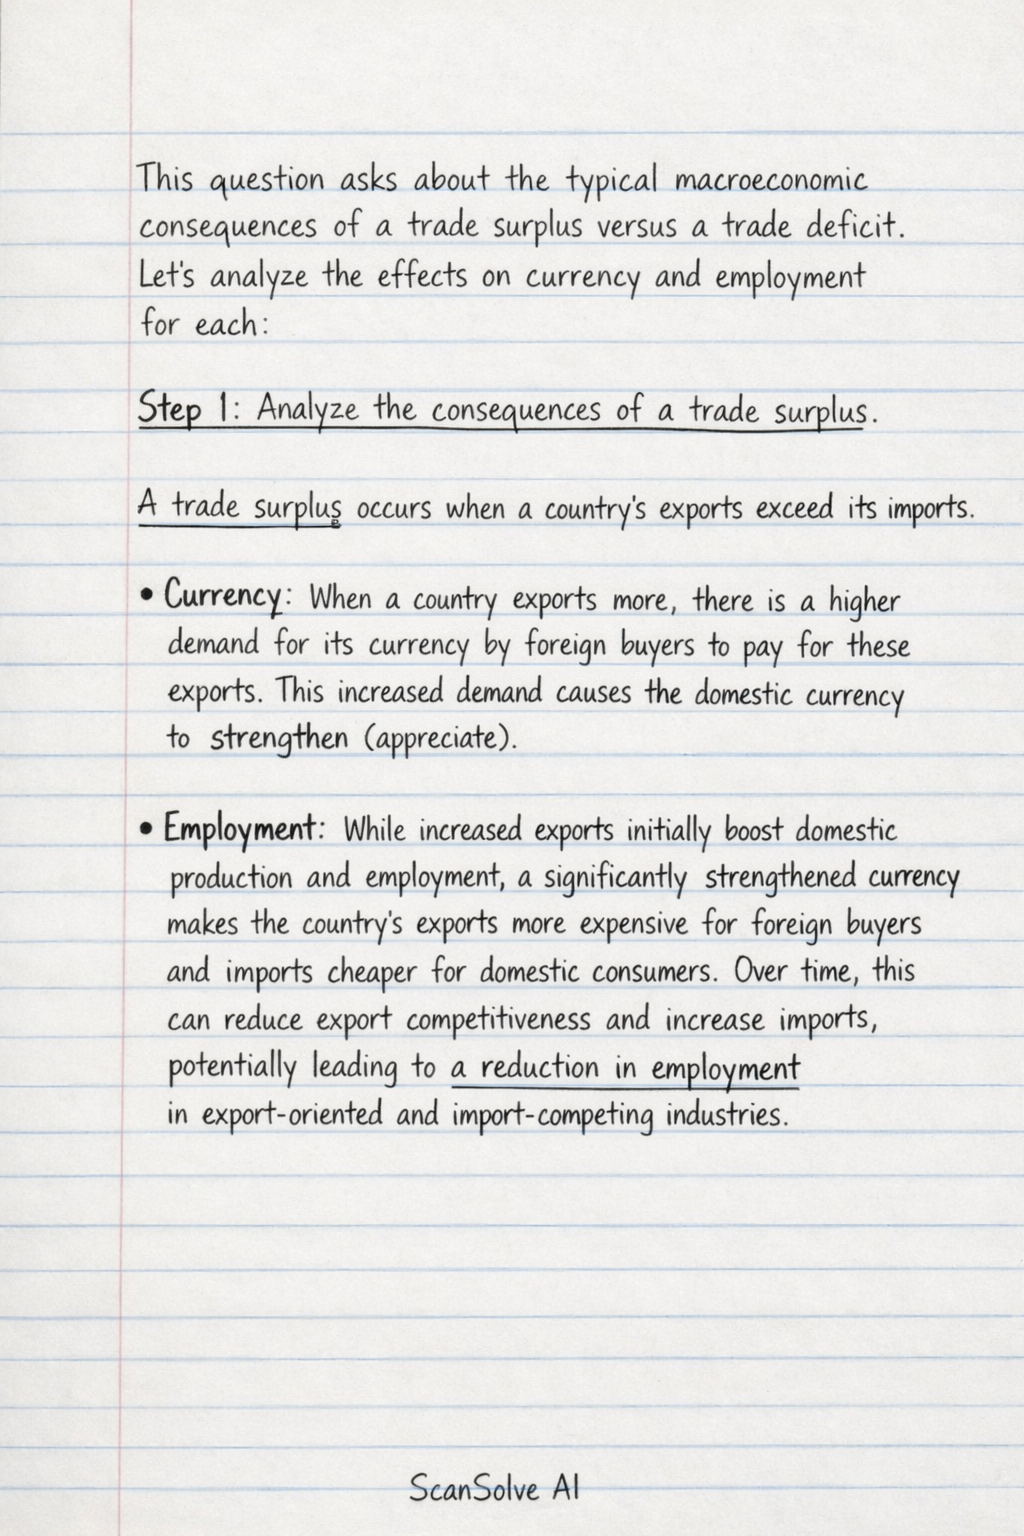 This question asks about the typical macroeconomic
consequences of a trade surplus versus a trade deficit.
Let's analyze the effects on currency and employment
for each:
Step 1: Analyze the consequences of a trade surplus.
A trade surplus occurs when a country's exports exceed its imports.
• Currency: When a country exports more, there is a higher
demand for its currency by foreign buyers to pay for these
exports. This increased demand causes the domestic currency
to strengthen (appreciate).
• Employment: While increased exports initially boost domestic
production and employment, a significantly strengthened currency
makes the country's exports more expensive for foreign buyers
and imports cheaper for domestic consumers. Over time, this
can reduce export competitiveness and increase imports,
potentially leading to a reduction in employment
in export-oriented and import-competing industries.
ScanSolve AI